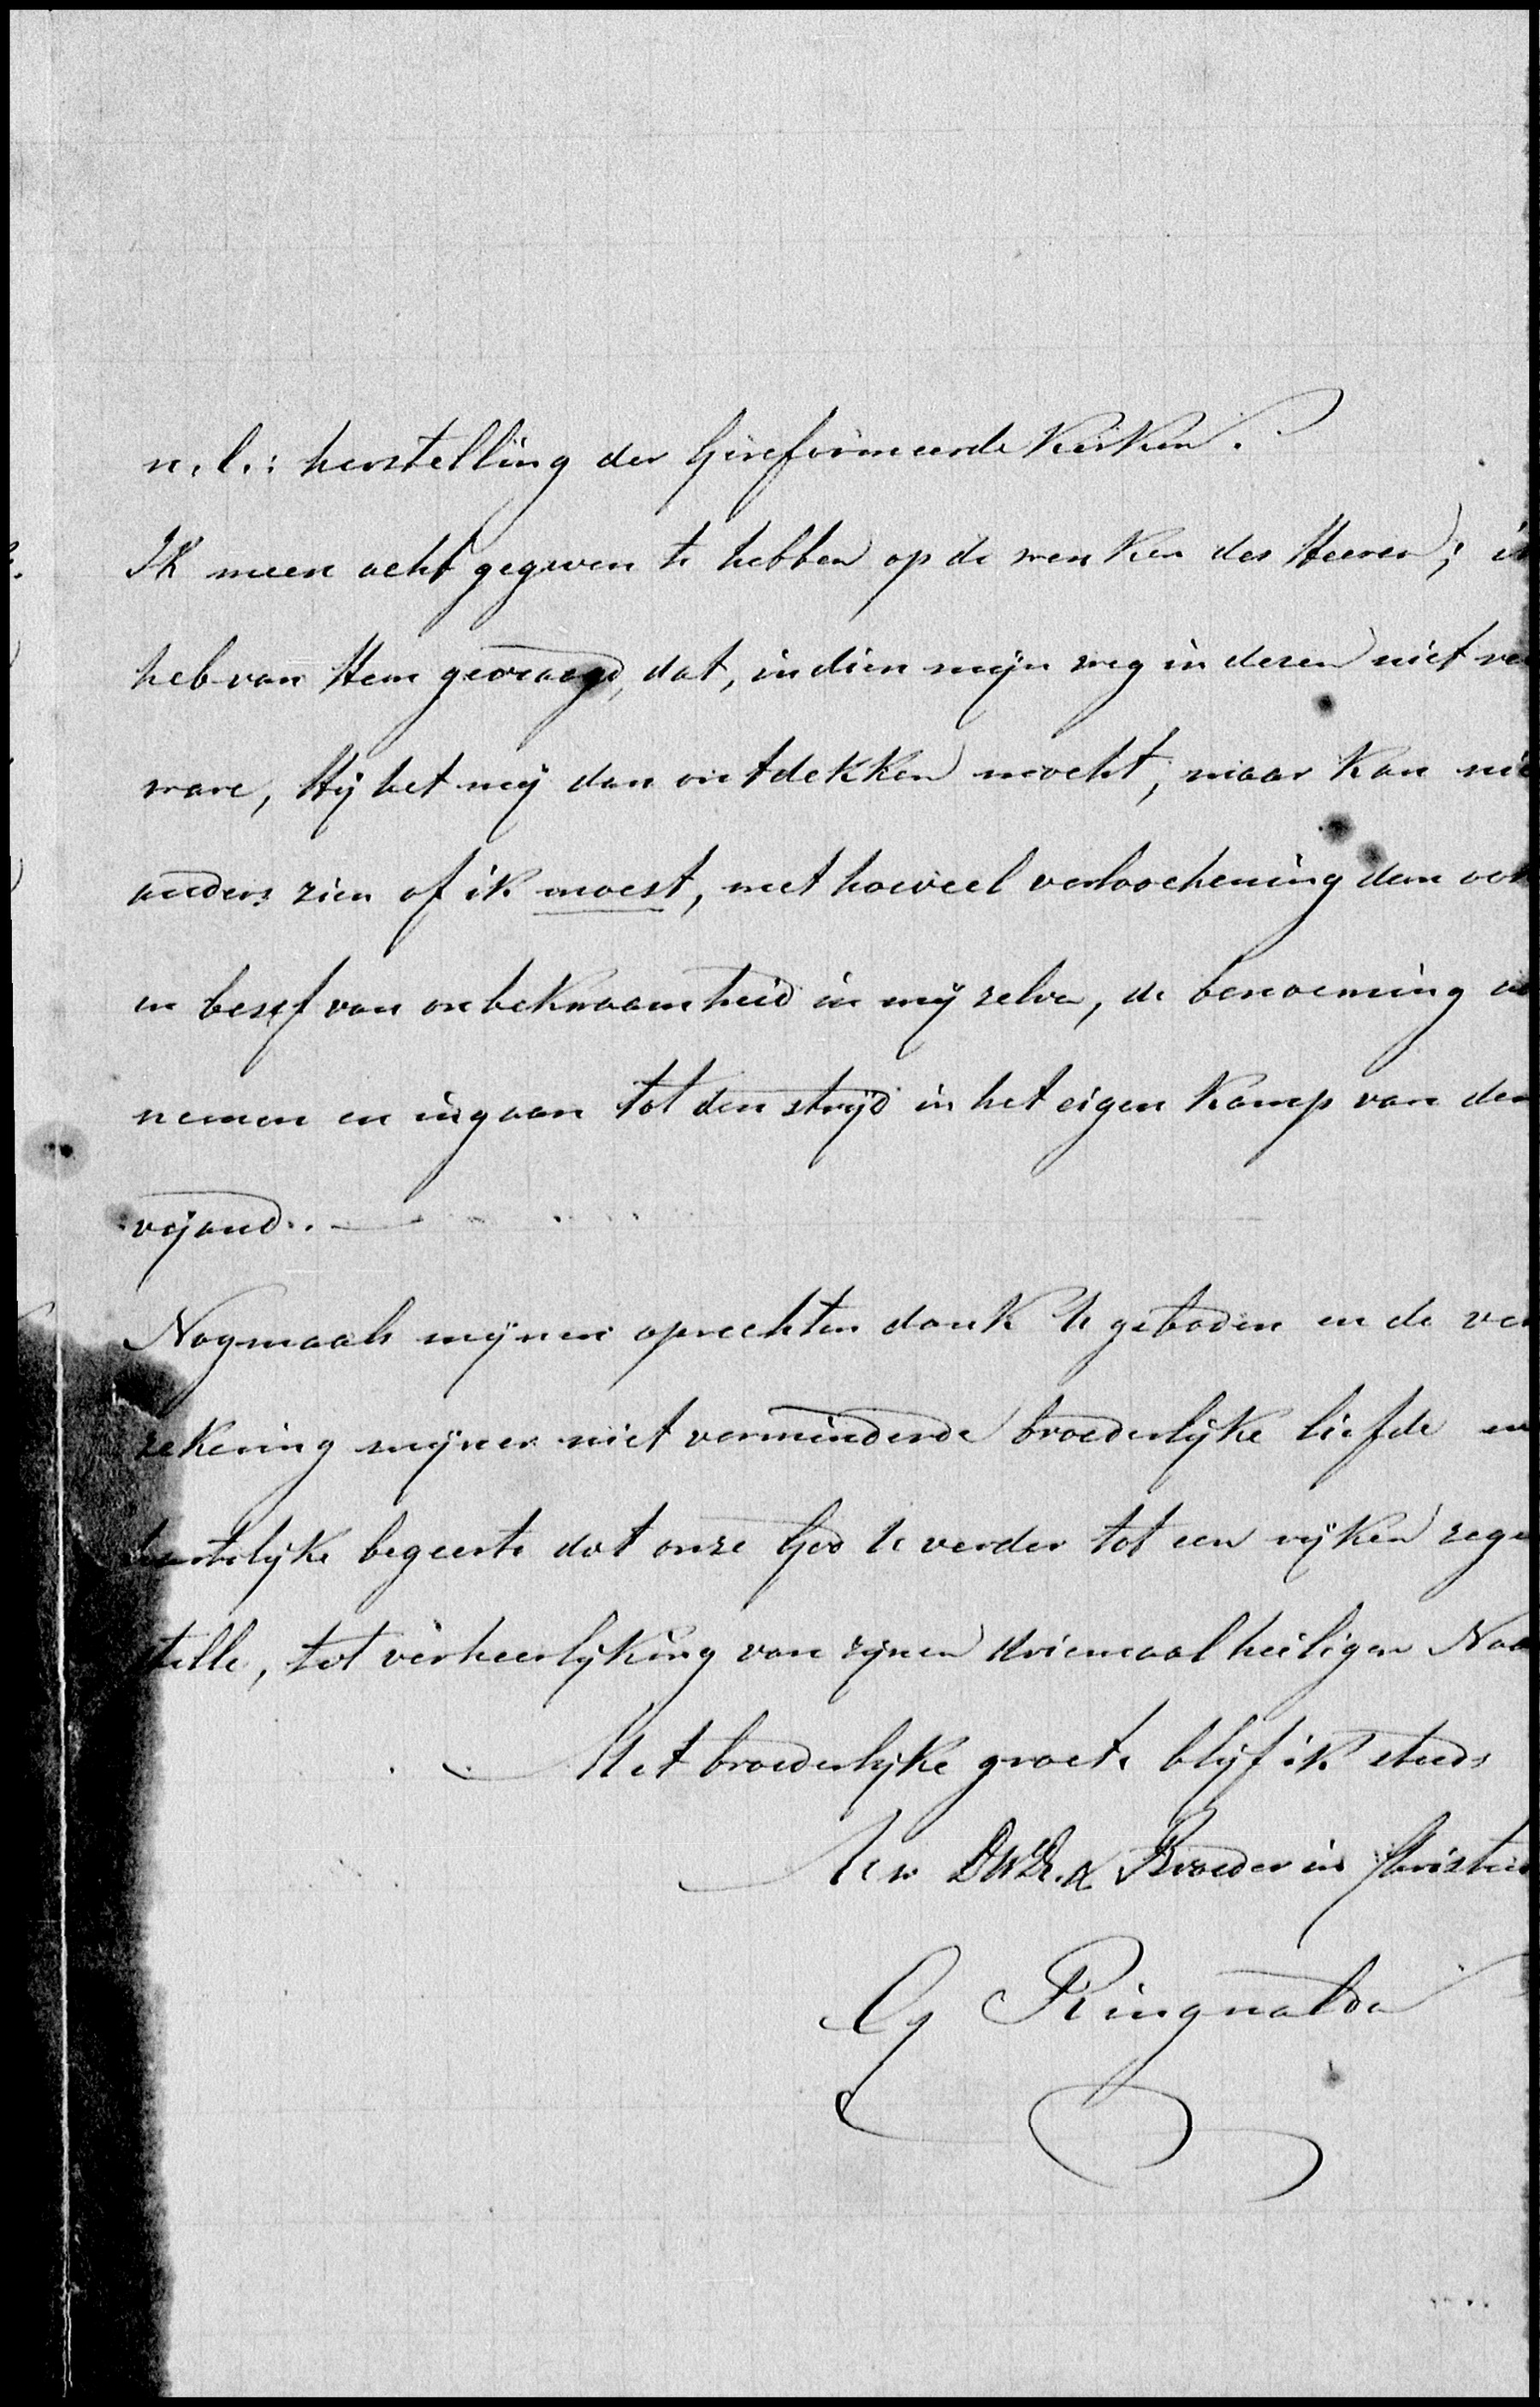 n.l.: herstelling der Gereformeerde Kerken.
Ik meen acht gegeven te hebben op de wenken des Heeren; i
heb van Hem gevraagd, dat, indien mijn weg in dezen niet
ware, Hij het mij dan ontdekken mocht, maar kan ni
anders zien of ik moest, met hoeveel verloochening dan oo
en besef van onbekwaamheid in mij zelve, de benoeming
nemen en ingaan tot den strijd in het eigen kamp van den
vijand. —
Nogmaals mijnen oprechten dank U geboden en de ver
zekering mijner niet verminderde broederlijke liefde en
hartelijke begeerte dat onze God U verder tot een rijken zege
stelle, tot verheerlijking van zijnen driemaal heiligen Naa
Met broederlijke groete blijf ik steeds
Uw DWDr. & Broeder in Christus
Ringnalda